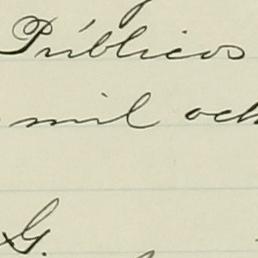 Públicos
mil och
G.